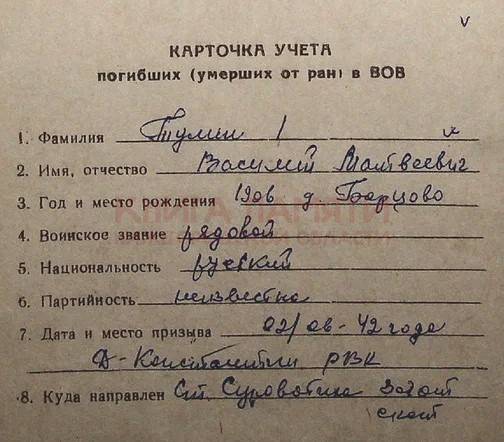 v
КАРТОЧКА УЧЕТА
погибших (умерших от ран) в ВОВ
1. Фамилия Тумин
2. Имя, отчество Василий Матвеевич
3. Год и место рождения 1906 д. Барцово
КНИГА ПАМЯТИ
4. Воинское звание рядовой
ОБЛАСТИ
5. Национальность русский
6. Партийность неизвестно
7. Дата и место призыва 02/06-42 года
Д-Константин РВК
8. Куда направлен Ст. Суроватиха